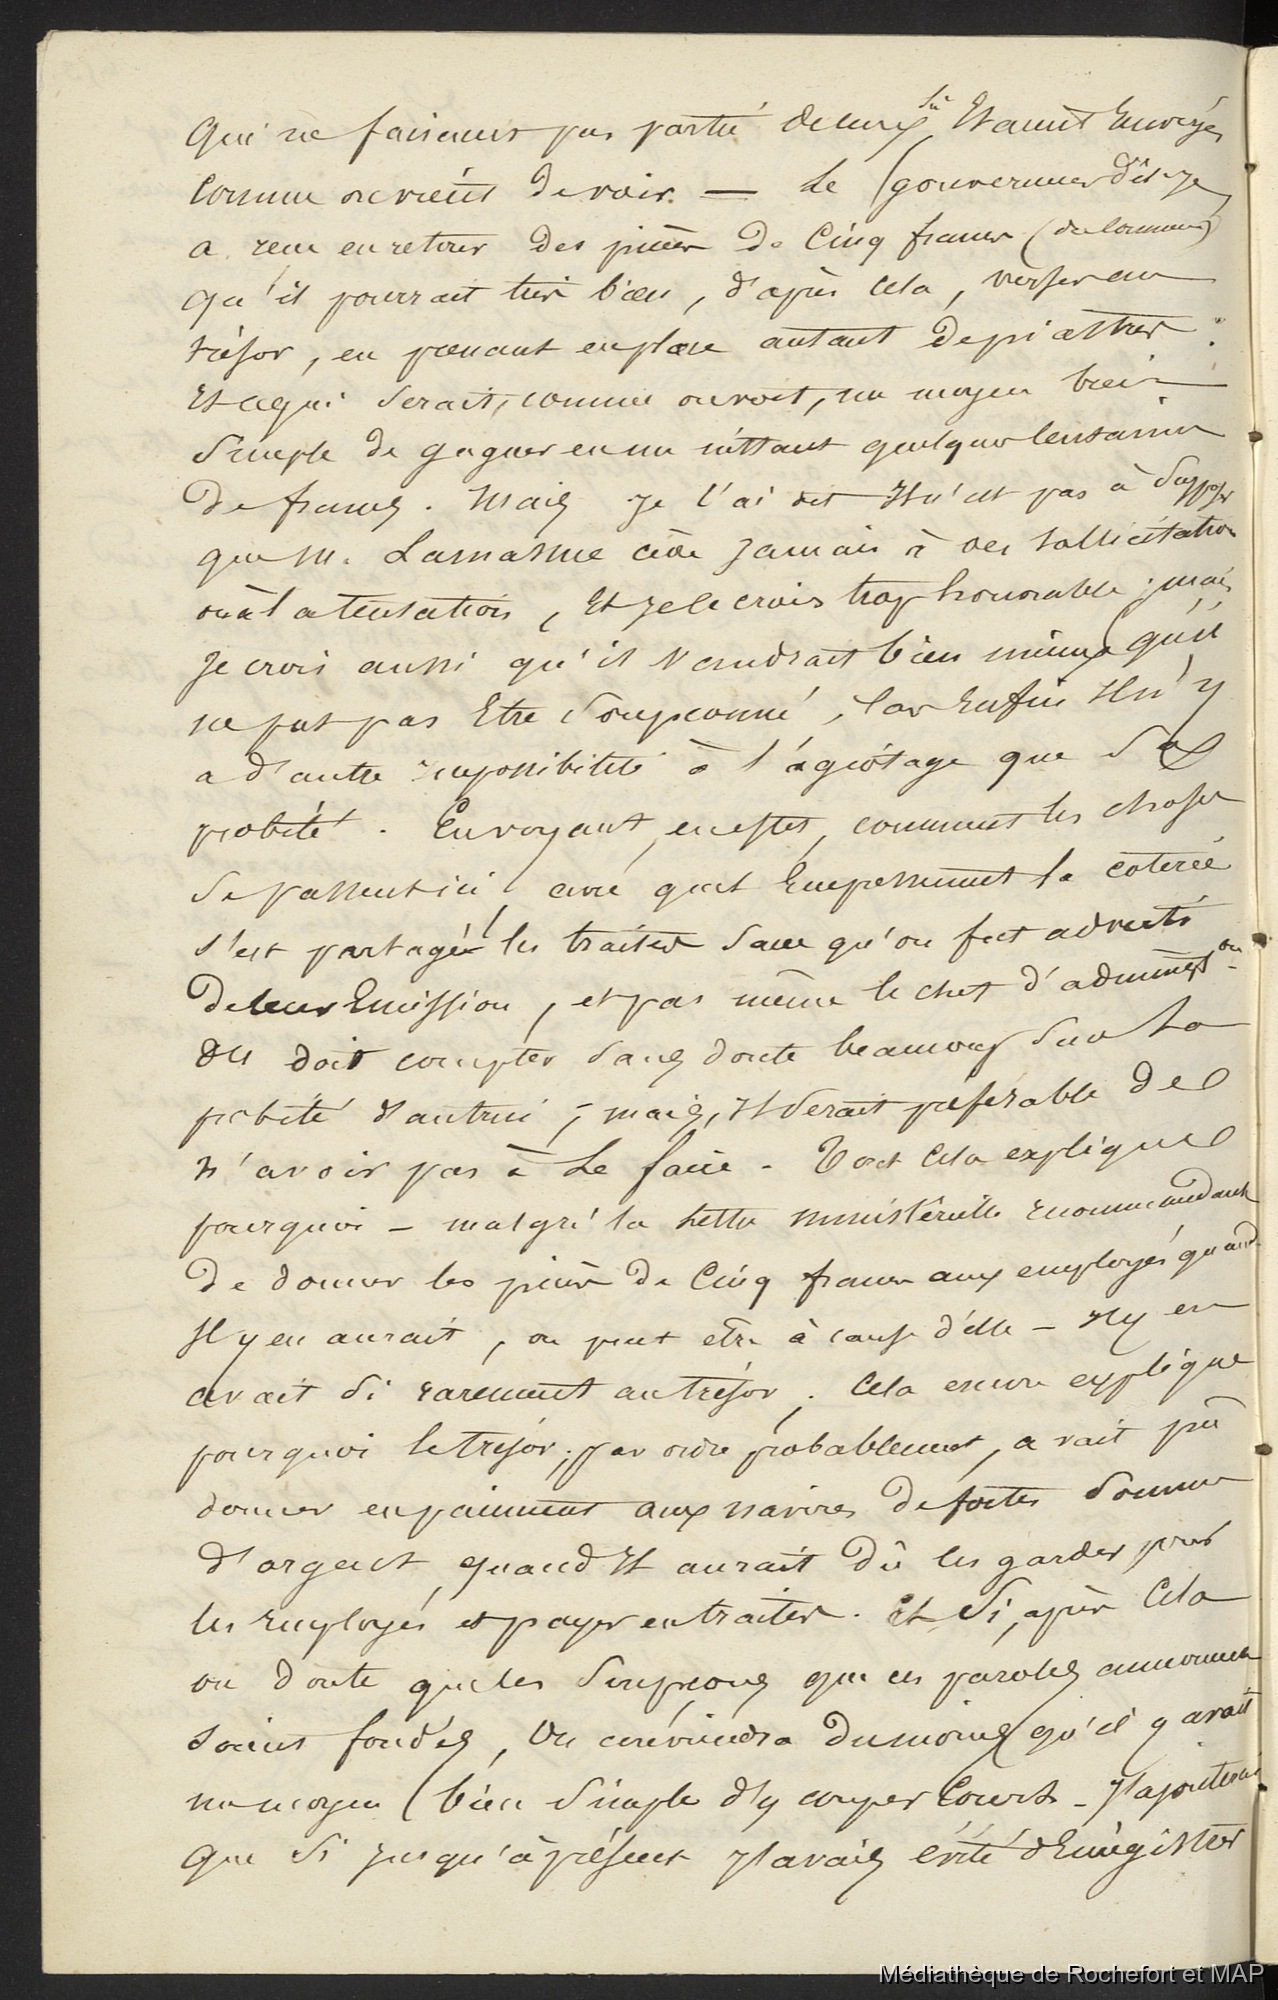 qui ne faisaient pas partie de leurs Etaient Envoyés
comme on vient de voir. — Le gouverneur dis-je
a reçu en retour des pièces de Cinq francs (du commerce)
qu'il pourrait très bien, d'après cela, verser au
trésor, en prenant en place autant de piastres :
Et ce qui serait, comme on voit, un moyen bien
simple de gagner en un instant quelques centaines
de francs. Mais je l'ai dit Il n'est pas à supposer
que M. Lamasme cède jamais à des sollicitations
ou à la tentation, Et je le crois trop honorable ; mais
je crois aussi qu'il vaudrait bien mieux qu'il
ne put pas Etre soupçonné, Car Enfin Il n'y
a d'autre impossibilité à l'agiotage que sa
probité. En voyant, en effet, comment les choses
se passent ici, avec quel Empressement la coterie
s'est partagée les traites sans qu'on fut averti
de leur Emission, et pas même le chef d'adminis.on
On doit compter sans doute beaucoup sur la
probité d'autrui ; mais, Il serait préférable de
n'avoir pas à le faire. Tout cela explique
pourquoi — malgré la lettre ministérielle recommandant
de donner les pièces de Cinq francs aux employés quand
Il y en aurait, ou peut etre à cause d'elle — Il y en
avait si rarement au trésor. Cela encore explique
pourquoi le trésor, par ordre probablement, avait pû
donner en paiement aux navires de fortes sommes
d'argent, quand Il aurait dû les garder pour
les Employés et payer en traites. Et si, après Cela
on doute que les soupçons que ces paroles annoncent
soient fondés, On conviendra du moins qu'il y avait
un moyen bien simple d'y couper Court — J'ajouterai
que si jusqu'à présent J'avais évité d'Enregistrer
Médiathèque de Rochefort et MAP